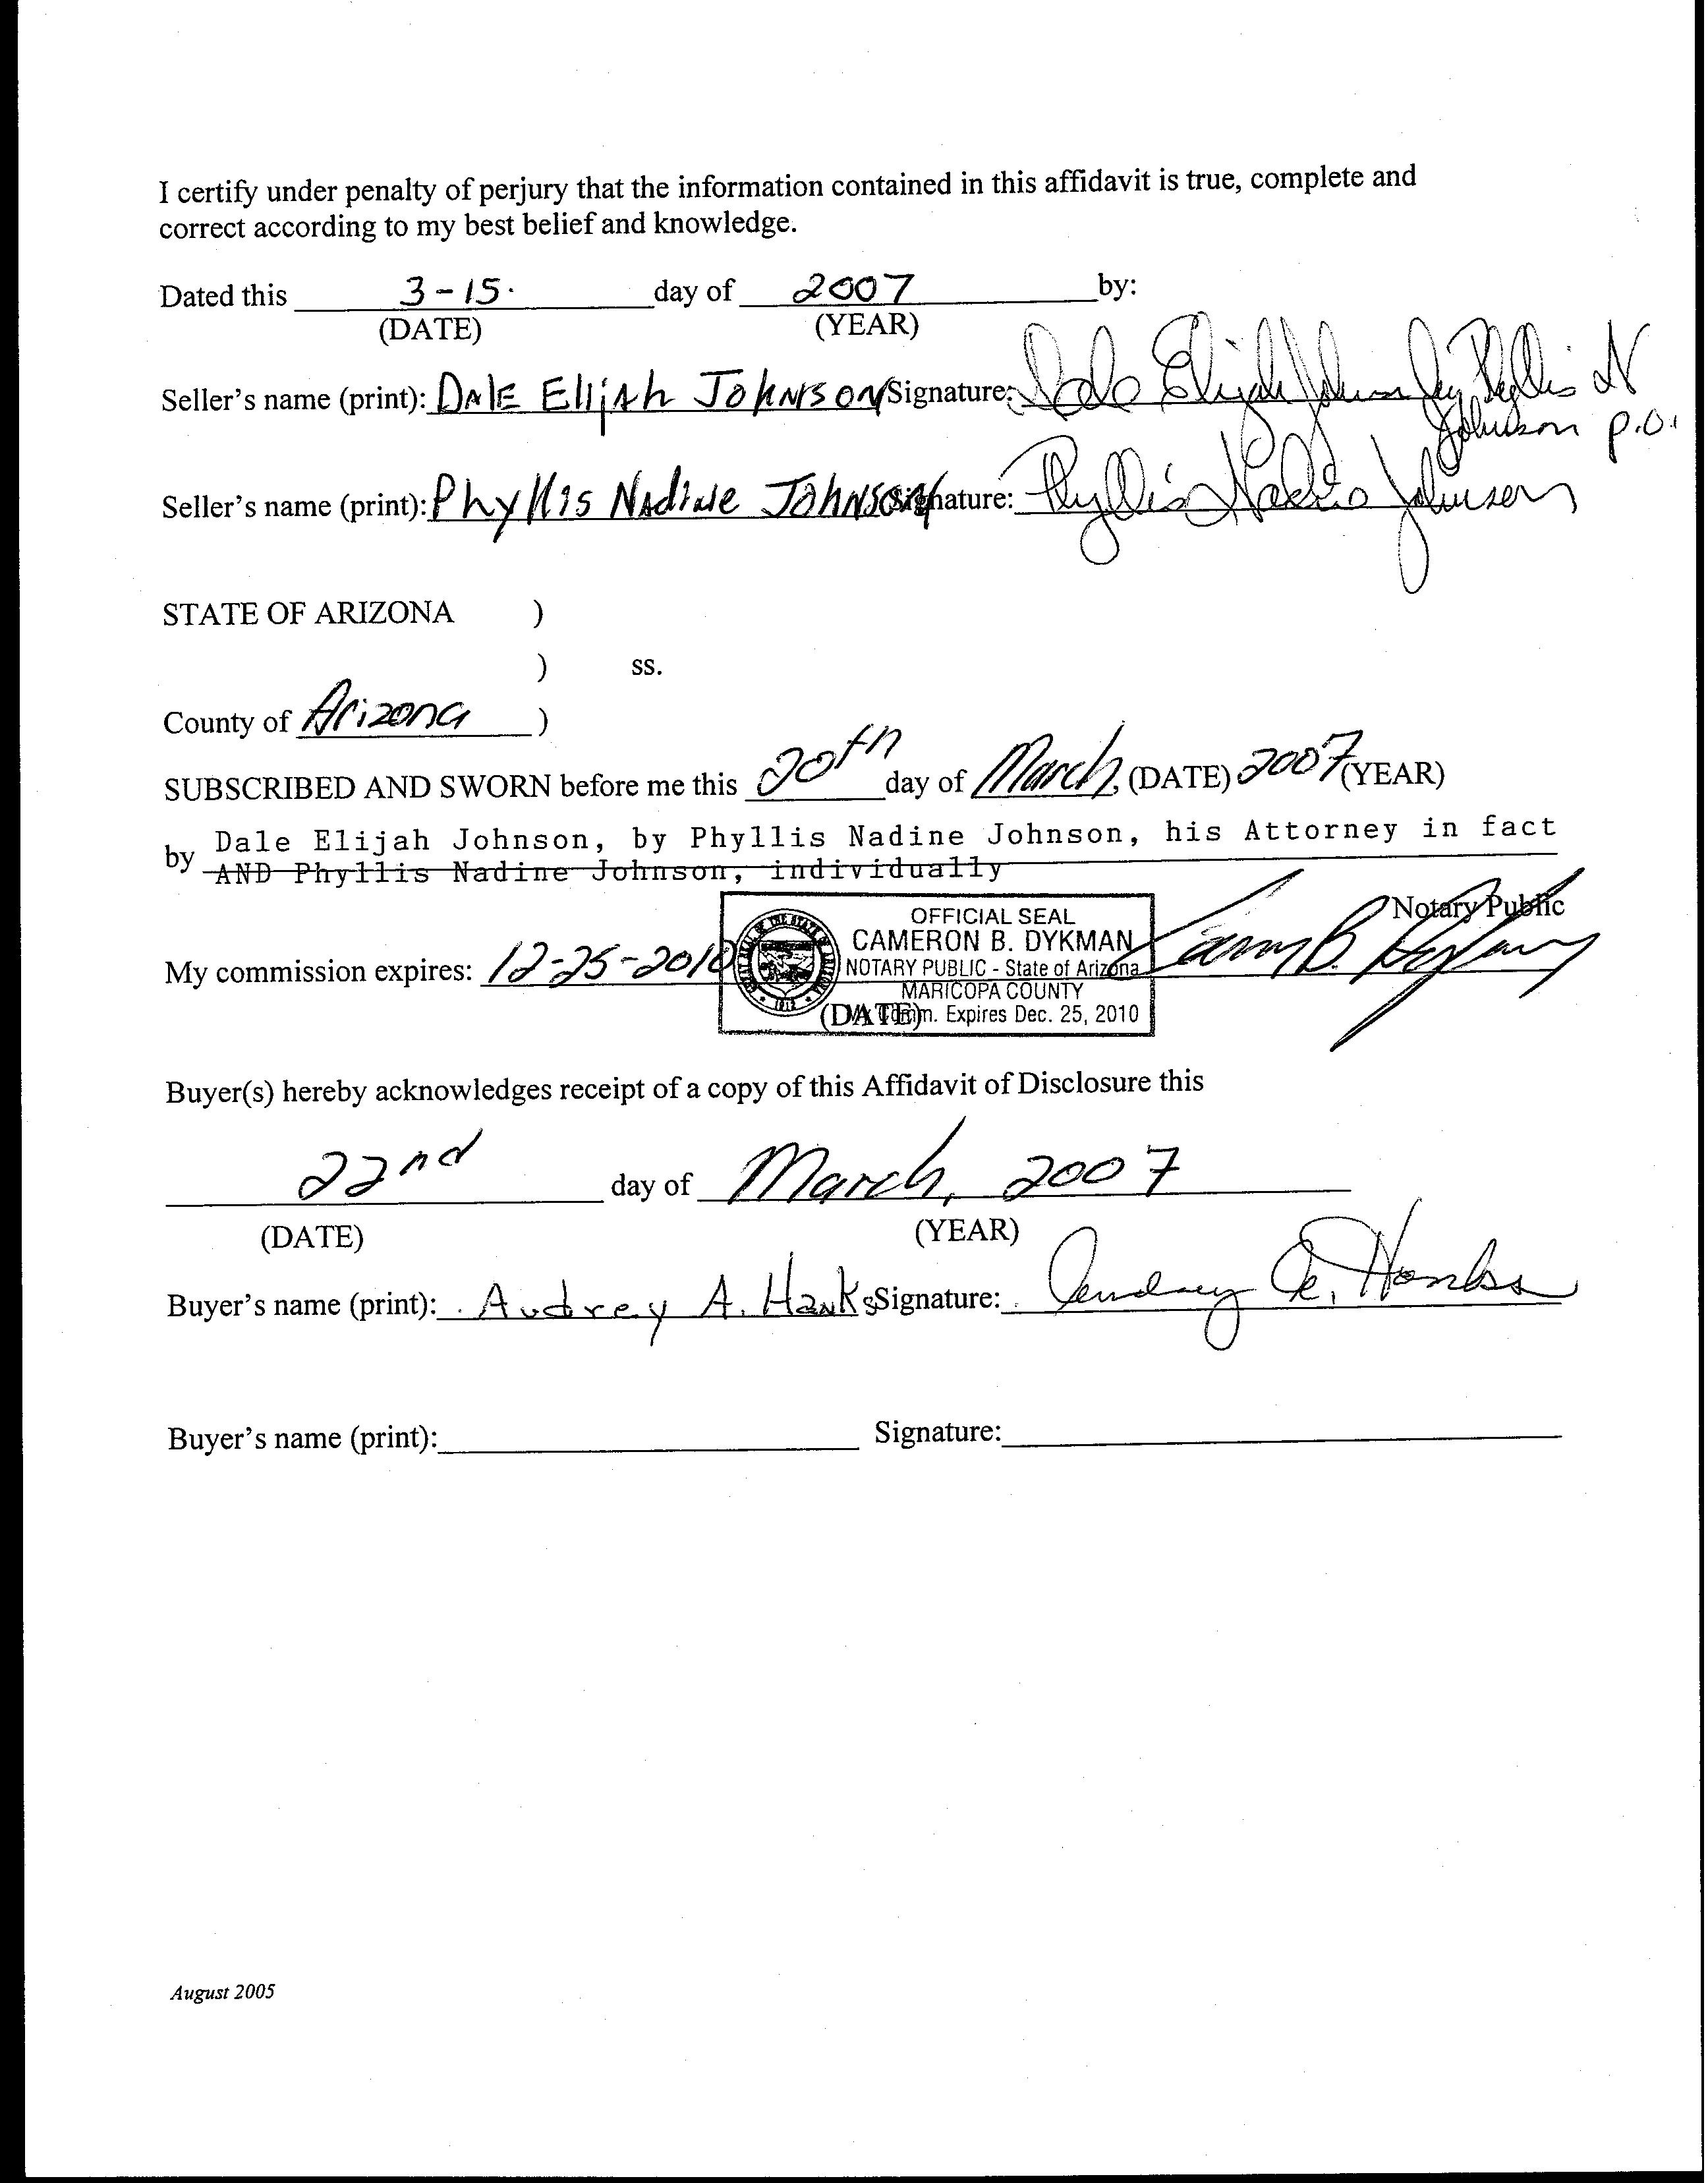 I certify under penalty of perjury that the information contained in this affidavit is true, complete and
correct according to my best belief and knowledge.
Dated this 3-15. day of 2007 by:
(DATE) (YEAR)
Seller's name (print): DALE Elijah Johnson Signature: Dale Elijah Johnson by Phyllis N
Johnson P.O.
Seller's name (print): Phyllis Nadine Johnson Signature: Phyllis Nadine Johnson
STATE OF ARIZONA )
) ss.
County of Arizona )
SUBSCRIBED AND SWORN before me this 20th day of March, (DATE) 2007 (YEAR)
by Dale Elijah Johnson, by Phyllis Nadine Johnson, his Attorney in fact
AND Phyllis Nadine Johnson, individually
Notary Public
OFFICIAL SEAL
CAMERON B. DYKMAN
NOTARY PUBLIC - State of Arizona
MARICOPA COUNTY
My Comm. Expires Dec. 25, 2010
My commission expires: 12-25-2010
(DATE)
Buyer(s) hereby acknowledges receipt of a copy of this Affidavit of Disclosure this
22nd day of March, 2007
(DATE) (YEAR)
Buyer's name (print): Audrey A. Hanks Signature: Audrey A. Hanks
Buyer's name (print): Signature:
August 2005